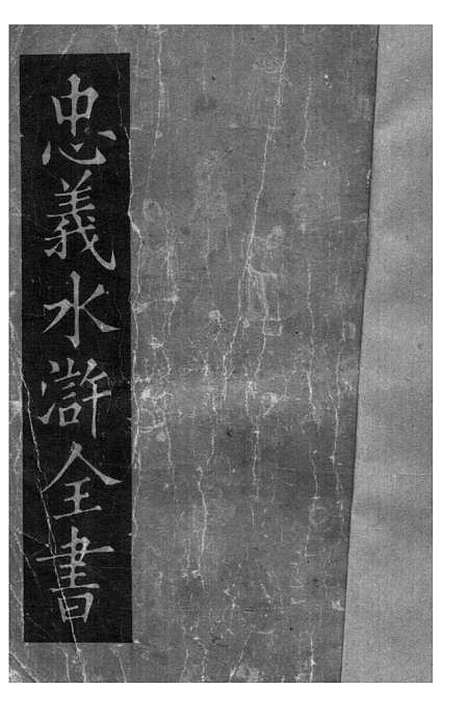 忠義水滸全書